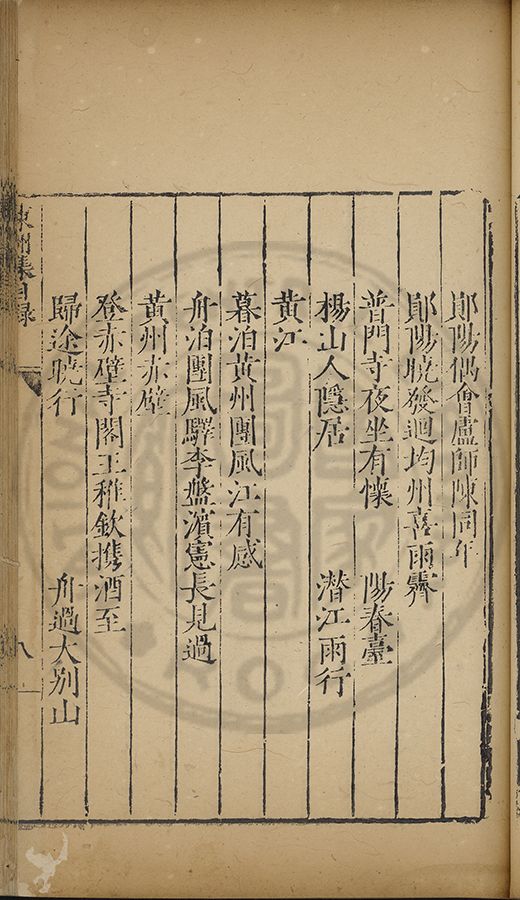 鄖陽偶會盧師陳同年
鄖陽曉發迴均州喜雨霽
普門寺夜坐有懷　陽春臺
楊山人隱居　潛江雨行
黃江
暮泊黃州團風江有感
舟泊團風驛李盤濱憲長見過
黃州赤壁
登赤壁寺閣王稚欽携酒至
歸途曉行　舟過大別山
東洲集目錄　八